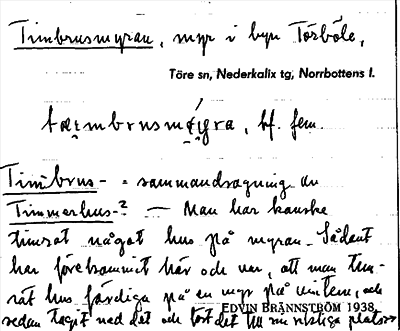 Timbrusmyran, myr i byn Törböle,
Töre sn, Nederkalix tg, Norrbottens l.
bf. fem.
Timbrus- = sammandragning av
Timmerhus-? — Man har kanske
timrat något hus på myran. Sådant
har förekommit här och var, att man tim-
rat hus färdiga på en myr på vintern, och
EDVIN BRÄNNSTRÖM 1938
sedan tagit ned det och fört det till sin riktiga plats